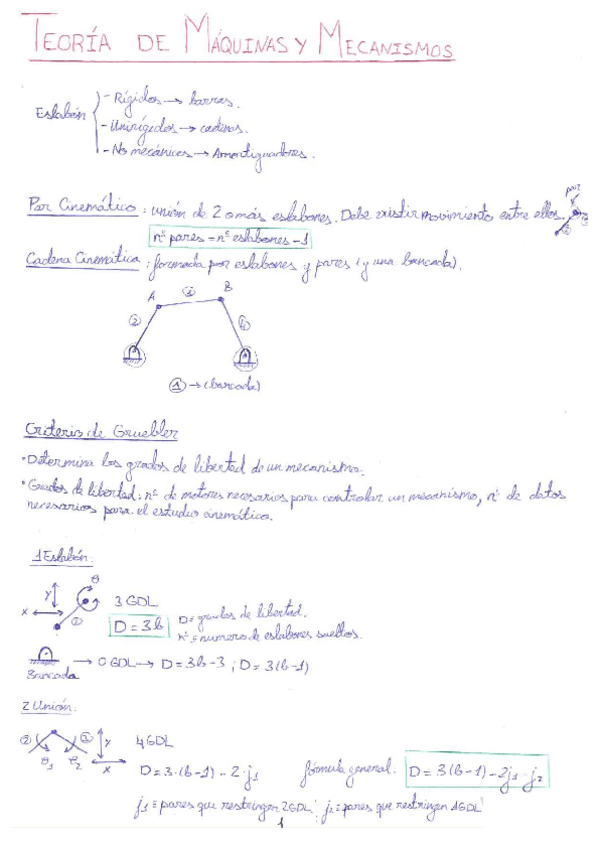 TEORÍA DE MÁQUINAS Y MECANISMOS
Eslabón
- Rígidos → barras.
- Unirígidos → cadenas.
- No mecánicos → Amortiguadores.
Par Cinemático: unión de 2 o más eslabones. Debe existir movimiento entre ellos.
par
nº pares = nº eslabones - 1
Cadena Cinemática: formada por eslabones y pares (y una bancada).
A
③
B
②
④
① → (bancada)
Criterio de Gruebler
• Determina los grados de libertad de un mecanismo.
• Grados de libertad: nº de motores necesarios para controlar un mecanismo, nº de datos
necesarios para el estudio cinemático.
1 Eslabón:
θ
y
x
①
3 GDL
D = 3b
D = grados de libertad.
nº = numero de eslabones sueltos.
Bancada
→ 0 GDL → D = 3b - 3 ; D = 3(b-1)
2 Unión:
②
③
θ₁
θ₂
y
x
4 GDL
D = 3·(b-1) - 2·j₁
fórmula general.
D = 3(b-1) - 2j₁ - j₂
j₁ = pares que restringen 2GDL ; j₂ = pares que restringen 1GDL
1